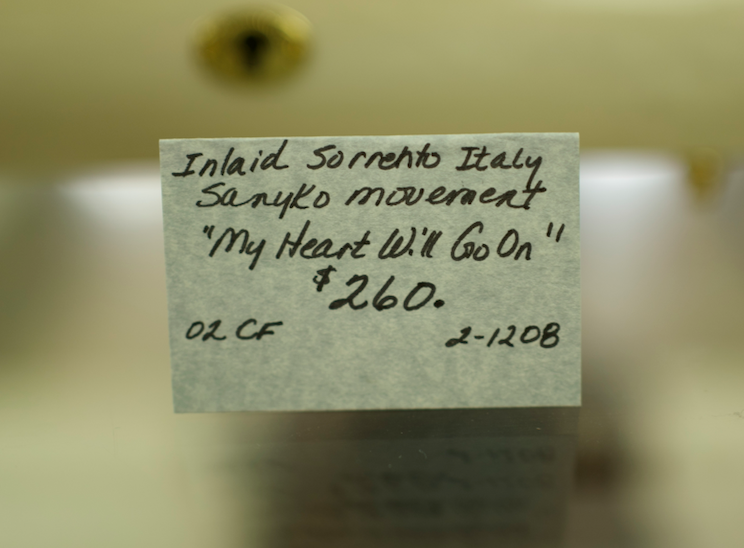 Inlaid Sorrento Italy
Sanyko movement
"My Heart Will Go On"
$260.
02 CF 2-120B